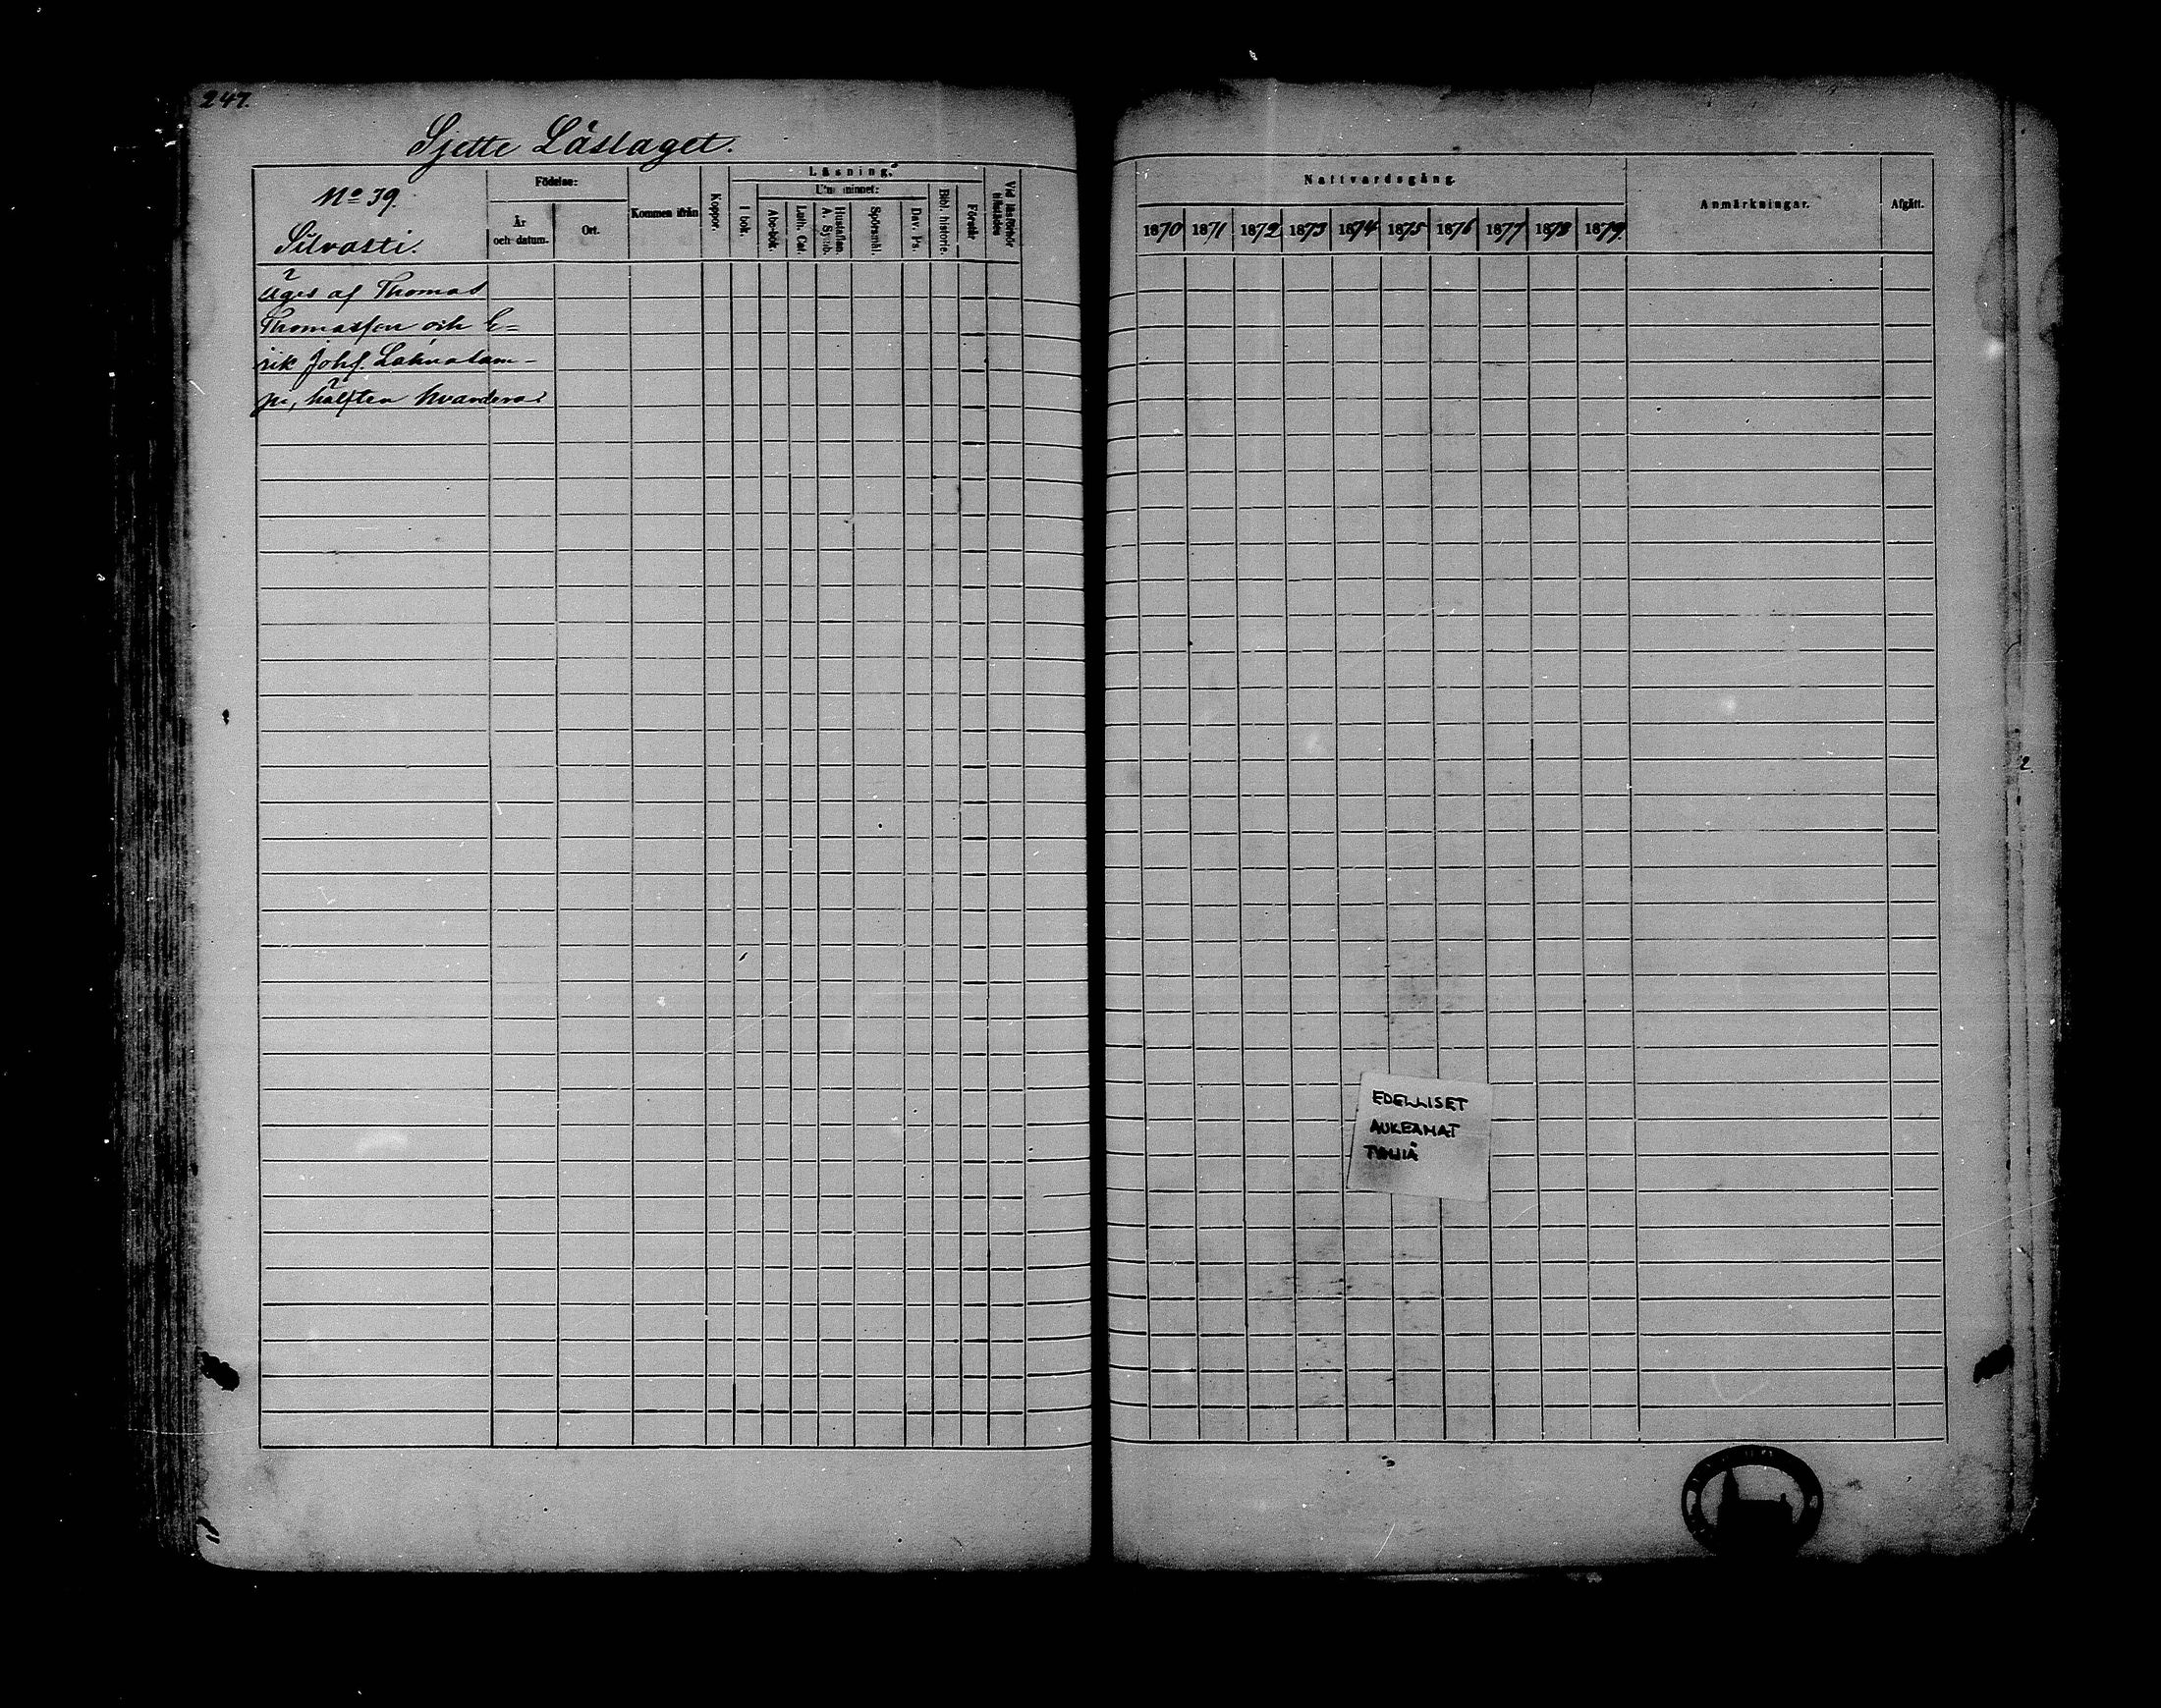 247.
Sjette Läslaget.
No 39.
Silvasti.
Födelse:
År
och datum.
Ort.
Kommen ifrån
Koppor.
Läsning.
I bok.
U'ur minnet:
Abc-bok.
Luth. Cat.
Hustaflan.
A. Symb.
Spörsmål.
Dav. Ps.
Bibl. historie.
Förstår
Vid läsförhör
tillstädes
äges af Thomas
Thomasson och E=
rik Johs. Lahnalam-
pi, hälften hvardera.
Nattvardsgång.
1870 1871 1872 1873 1874 1875 1876 1877 1878 1879.
Anmärkningar.
Afgått.
EDELLISET
AUKEAMAT
TYHJIÄ
2.